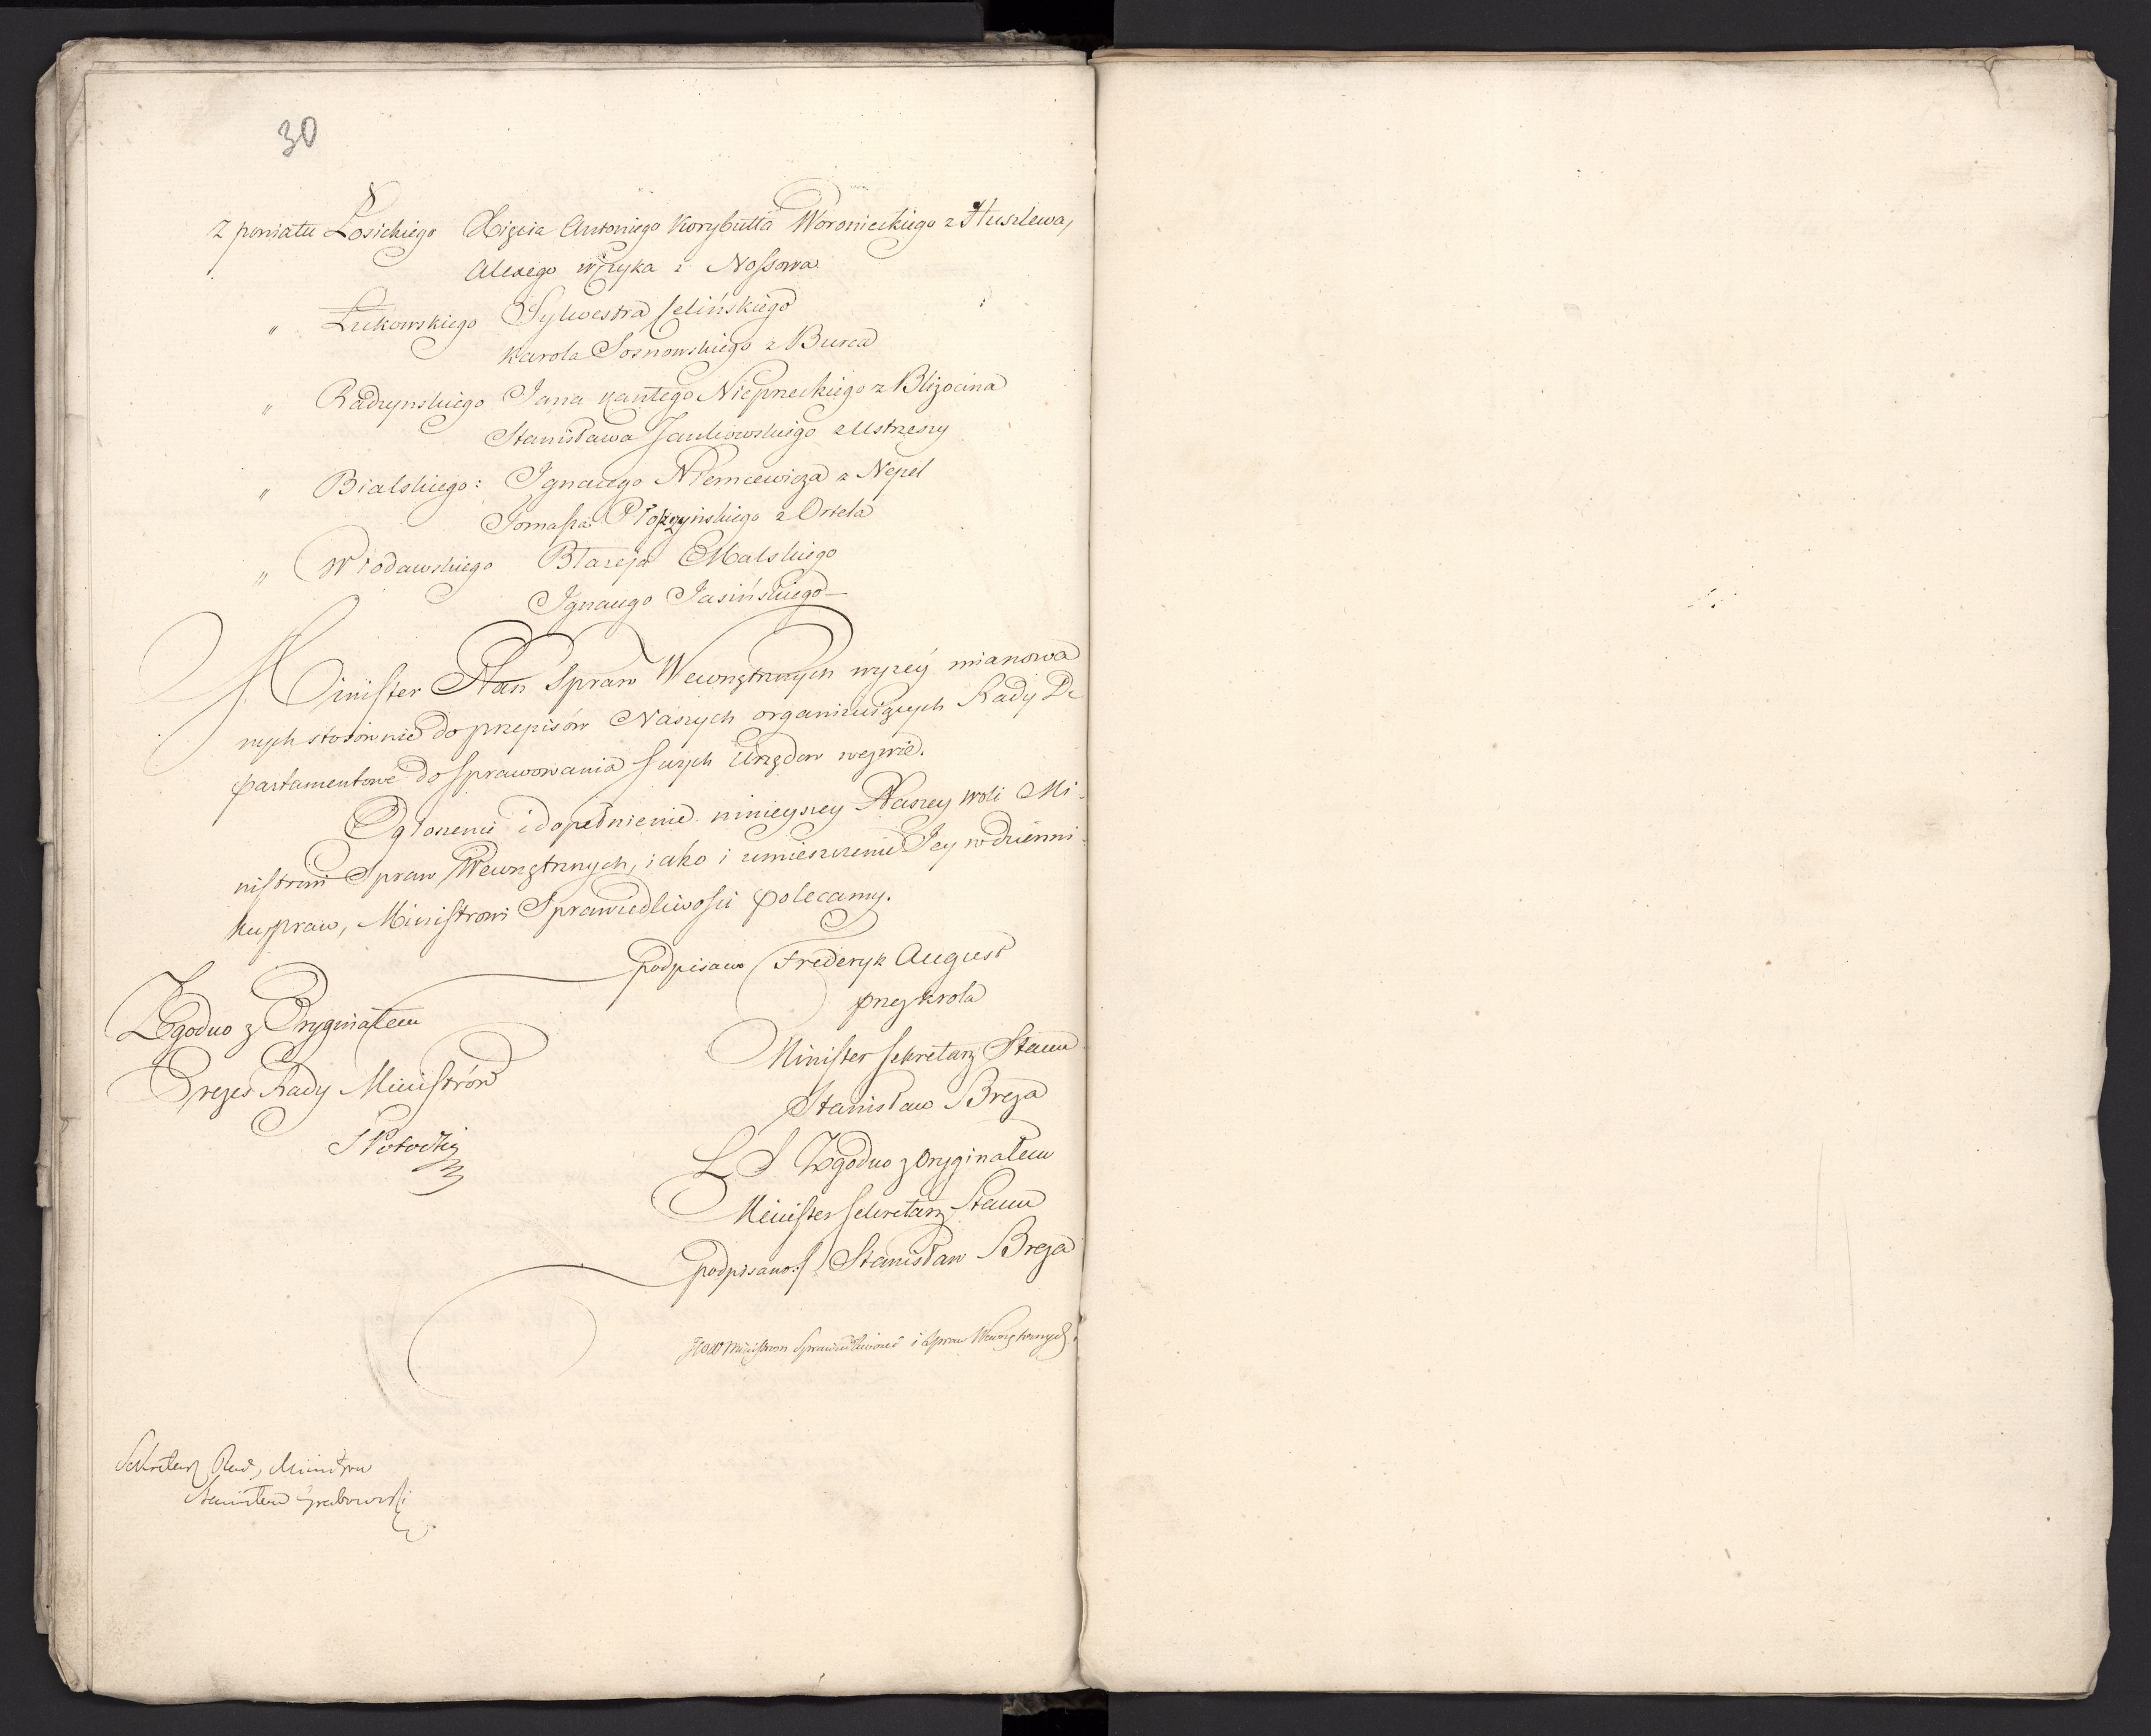 30
z powiatu Łosickiego Xięcia Antoniego Korybutta Woronieckiego z Huszlewa,
Alexego wężyka z Nossowa
" Łukowskiego Sylwestra Celińskiego
Karola Sosnowskiego z Burca
" Radzynskiego Jana Kantego Niepreckiego z Bligocina
Stanisława Jankowskiego z Ustrzeszy
" Bialskiego: Ignacego Niemcewicza z Nepel
Tomasza z Ortela
" Włodawskiego Błażeja Malskiego
Ignacego Jasińskiego –
Minister Nasz Spraw Wewnętrznych wyzey mianowa
nych stosownie do przepisów Naszych organizuiących Rady De
partamentowe do sprawowania swych Urzędow wezwie.
Ogłoszenie i dopełnienie ninieyszey Naszey woli Mi-
nistrowi Spraw Wewnętrznych, iako i umieszczenie Jey w dzienni-
ku praw, Ministrowi Sprawiedliwości polecamy.
podpisano Frederyk August
przez krola
Zgodno z Oryginałem
Minister Sekretarz Stanu
Prezes Rady Ministrów
Stanisław Breza
S Potocki
L S Zgodno z Oryginałem
Minister Sekretarz Stanu
podpisano:/ Stanisław Breza
Ministrom Sprawiedliwości i Spraw Wewnętrznych
Sekretarz Rady Ministrow
Stanisław Grabowski